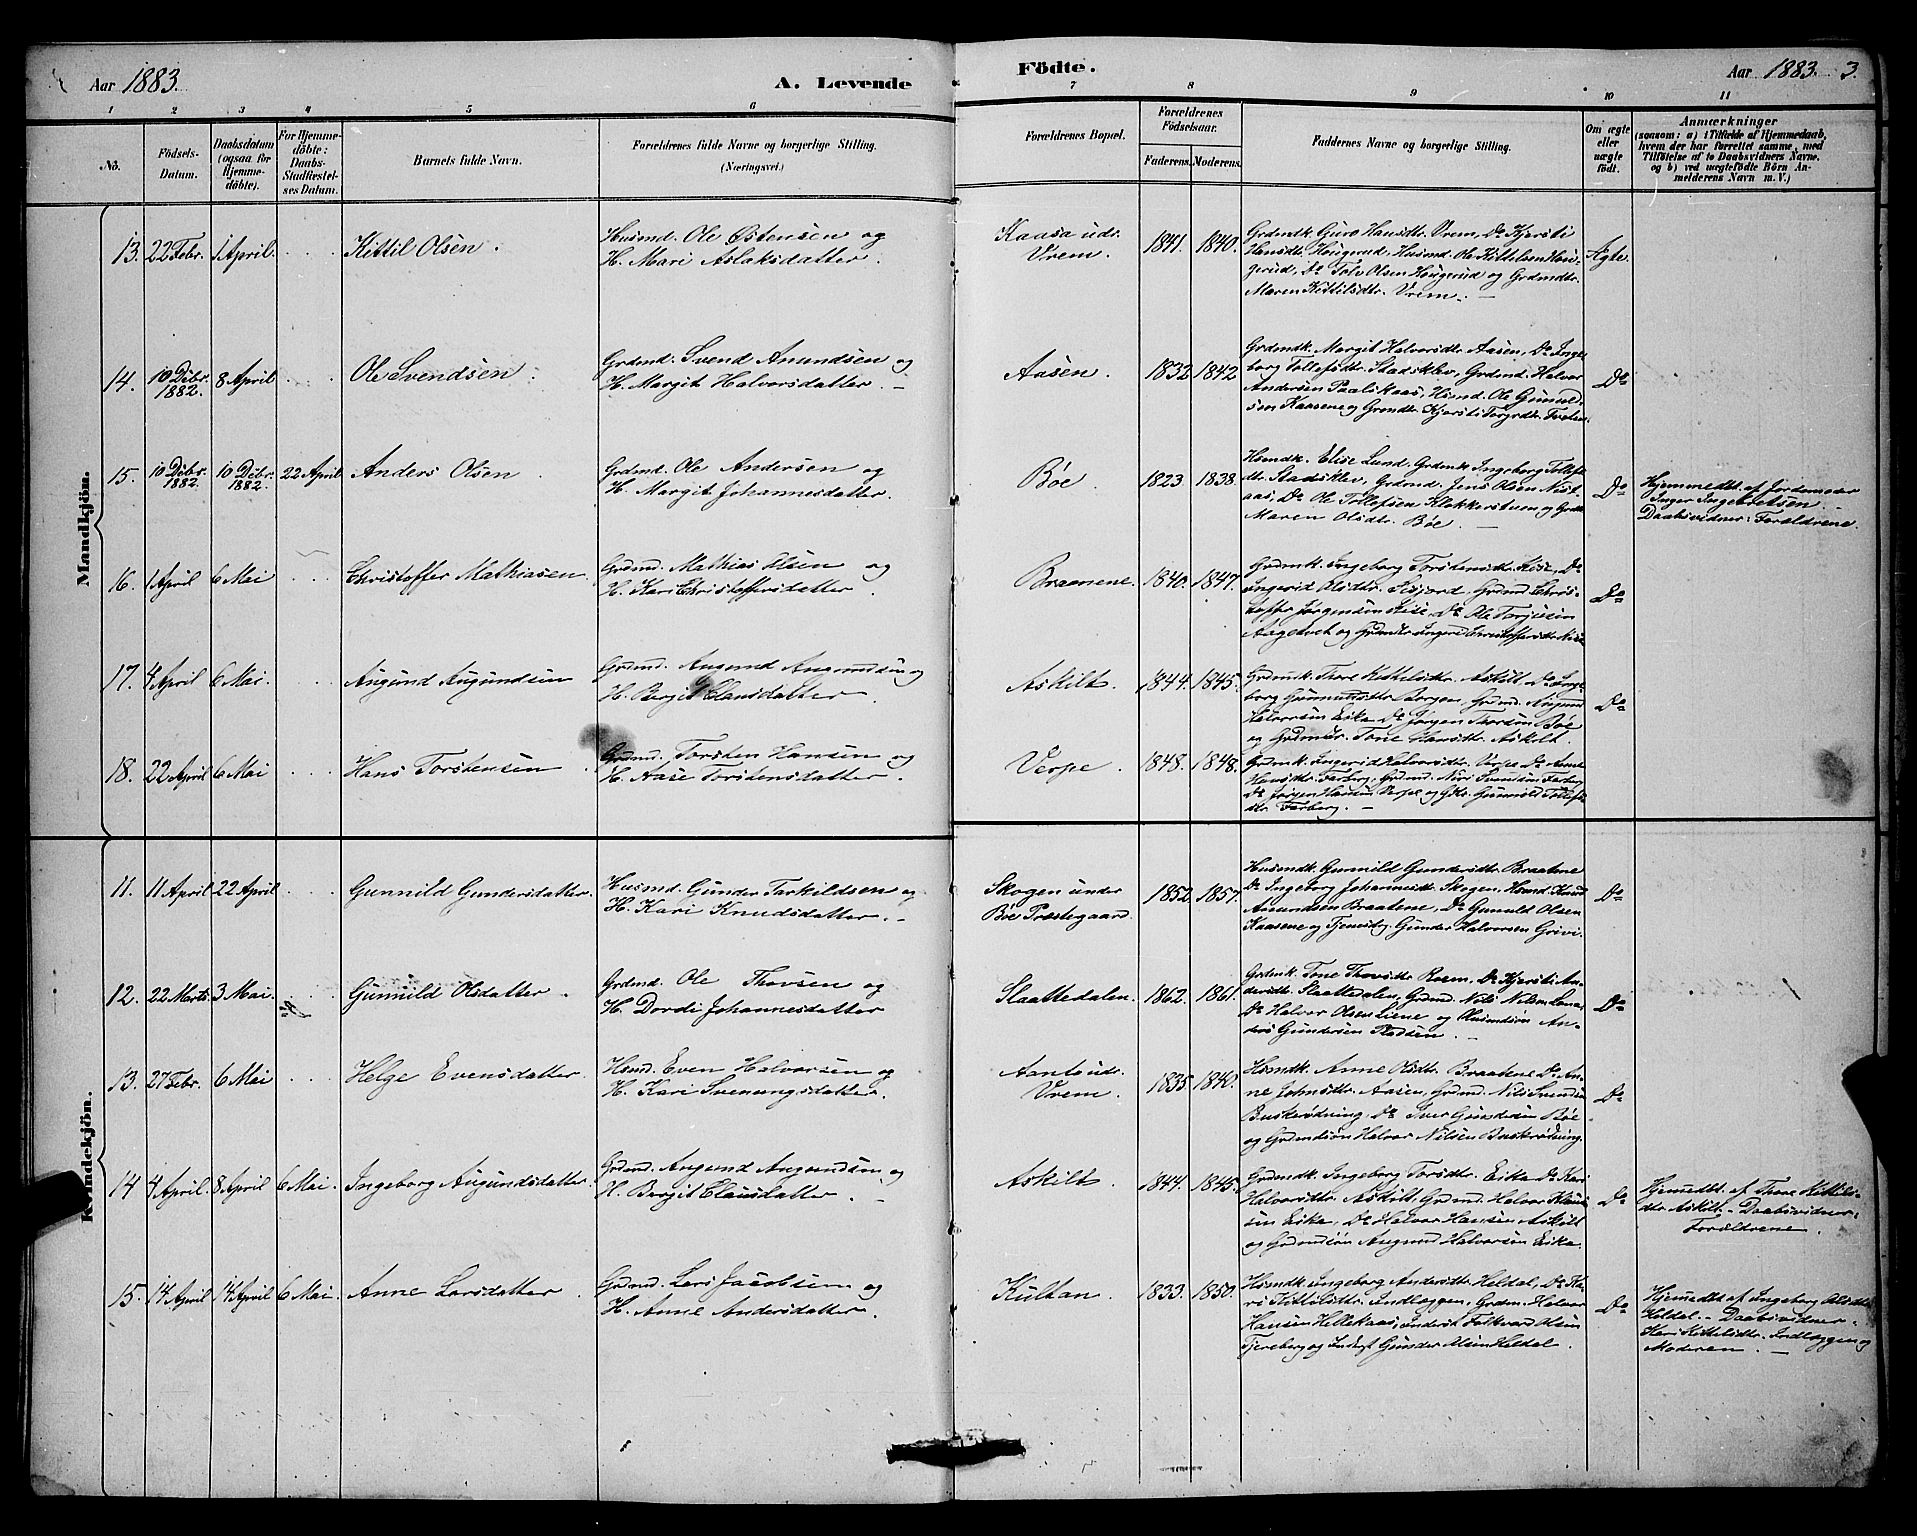 Aar 1883.
A. Levende Födte.
Aar 1883. 3.
1 2 3 4 5 6 7 8 9 10 11
No.
Födsels-Datum.
Daabsdatum (ogsaa for Hjemme-döbte).
For Hjemme-döbte: Daabs-Stadfæstel-ses Datum.
Barnets fulde Navn.
Forældrenes fulde Navne og borgerlige Stilling. (Næringsvei.)
Forældrenes Bopæl.
Forældrenes Födselsaar.
Faderens. Moderens.
Faddernes Navne og borgerlige Stilling.
Om ægte eller uægte födt.
Anmærkninger
(saasom: a) i Tilfælde af Hjemmedaab,
hvem der har forrettet samme, med
Tilföielse af to Daabsvidners Navne.
og b) ved uægtefödte Börn An-
melderens Navn m. V.)
Mandkjön.
13. 22 Febr. 1 April. Kittil Olsen.
Husmd. Ole Østensen og
H. Mari Aslaksdatter.
Kaasa udr.
Vrem.
1841. 1840.
Grdmdk. Guro Hansdt. Vrem, Do Kjersti
Hansdtr. Hougerud, Husmd. Ole Kittelsen Hou-
gerud, Do Tolv Olsen Hougerud og Grdmdtr.
Maren Kittilsdtr. Vrem. -
Ægte.
14. 10 Debr. 1882. 8 April Ole Svendsen.
Grdmd. Svend Amundsen og
H. Margit Halvorsdatter. -
Aasen.
1832 1842
Grdmdk. Margit Halvorsdtr. Aasen, Do Inge-
borg Tollefsdtr. Stadsklev, Grdmd. Halvor
Andersen Paalskaas, Hsmd. Ole Gunuld-
sen Kaasene og Grmdtr. Kjersti
Do
15. 10 Debr. 1882. 10 Debr. 1882. 22 April Anders Olsen.
Grdmd. Ole Andersen og
H. Margit Johannesdatter.
Bøe.
1823 1838.
Hsmdk. Elise Lund. Grdmk. Ingeborg Tollefs-
dtr. Stadsklev, Grdmd. Jens Olsen Nist-
aas, Do Ole Tollefsen Klokkerstuen og Grdtr.
Maren Olsdtr. Bøe.
Do
Hjemmedbt. af Jordemoder
Inger Ingebretsen.
Daabsvidner: Forældrene.
16. 1 April 6 Mai Christoffer Mathiasen
Grdmd. Mathias Elsen og
H. Kari Christoffersdatter.
Braanene.
1840. 1847.
Grdmk. Ingeborg Torstensdtr. Kise, Do
Ingerid Olsdtr. Sisjord, Grdmd. Chris-
toffer Jørgensen Kise, Do Ole Torjusen
og Grdmdtr. Ingerid Christoffersdtr.
Do
17. 4 April 6 Mai. Augund Augundsen
Grdmd. Augund Augundsen og
H. Bergit Clausdatter.
Askilt.
1844. 1845.
Grdmdk. Thore Kittilsdtr. Askilt, Do Inge-
borg Gunmundsdtr. Borgen, Grdmd. Augund
Halvorsen Eika, Do Jørgen Thorsen Bøe
og Grdmdtr. Tone Hansdtr. Askilt.
Do
18. 22 April 6 Mai Hans Torstensen
Grdmd. Torsten Hansen og
H. Aase Torstensdatter.
Verpe.
1848. 1848.
Grdmk. Ingerid Halvorsdtr. Verpe Do Anne
Hansdtr. Farberg, Grdmd. Nils Svendsen Farberg
Do Jørgen Hansen Verpe og Gdtr. Gunnild Tollefs-
dtr. Farberg. -
Kvindekjön.
11. 11 April 22 April Gunnild Gundersdatter.
Husmd. Gunder Tarkildsen og
H. Kari Knudsdatter. -
Skogen under
Bøe Præstegaard.
1852 1857.
Husmdk. Gunnild Gundersdtr. Braatene
Do Ingeborg Johannesdtr. Skogen, Hsmd. Knud
Amundsen Braatene, Do Gunuld Olsen
Kaasene og Tjenestkg. Gunder Halvorsen Grivi.
Do
12. 22 Marts 3 Mai. Gunnild Olsdatter.
Grdmd. Ole Thovsen og
H. Dordi Johannesdatter
Slaattedalen.
1862. 1861.
Grdmk. Tone Thovsdtr. Roem, Do Kjersti An-
dersdtr. Slaattedalen, Grdmd. Nils Nilsen
Do Halvor Olsen Liene og Husmdsøn An-
ders Gundersen
Do
13. 27 Febr. 6 Mai Helge Evensdatter.
Hsmd. Even Halvorsen og
H. Kari Svenungsdatter.
udr.
Vrem.
1835. 1840.
Hsmdk. Anne Olsdtr. Braatene Do An-
ne Johnsdtr. Aasen, Grdmd. Nils Svendsen
Buskrødning, Do Iver Gundersen Bøe
og Grdmdsøn Halvor Nilsen Buskrødning.
Do
14 4 April. 8 April 6 Mai. Ingeborg Augundsdatter.
Grdmd. Augund Augundsen og
H. Bergit Clausdatter. -
Askilt.
1844. 1845.
Grdmdk. Ingeborg Torsdtr. Eika Do Kari
Halvorsdtr. Askilt, Grdmd. Halvor Klaus-
sen Eika, Do Halvor Hansen Askilt
og Grdmdsøn Augund Halvorsen Eika.
Do
Hjemedbt. af Thore Kittils-
dtr. Askilt. - Daabsvidner:
Forældrene
15. 14 April 14 April 6 Mai. Anne Larsdatter.
Grdmd. Lars Jacobsen og
H. Anne Andersdatter.
Kultan.
1833. 1850.
Hsmdk. Ingeborg Andersdtr. Heldal, Do Ka-
ri Kittilsdtr. Indlæggen, Grdm. Halvor
Hansen Hellekaas, Inderst Folkvard Olsen
Tjereberg og Inderst Gunder Olsen Heldal.
Do
Hjemedbt af Ingeborg Olsdtr
Heldal. - Daabsvidner.
Kari Kittelsdtr. Indlæggen og
Moderen. -